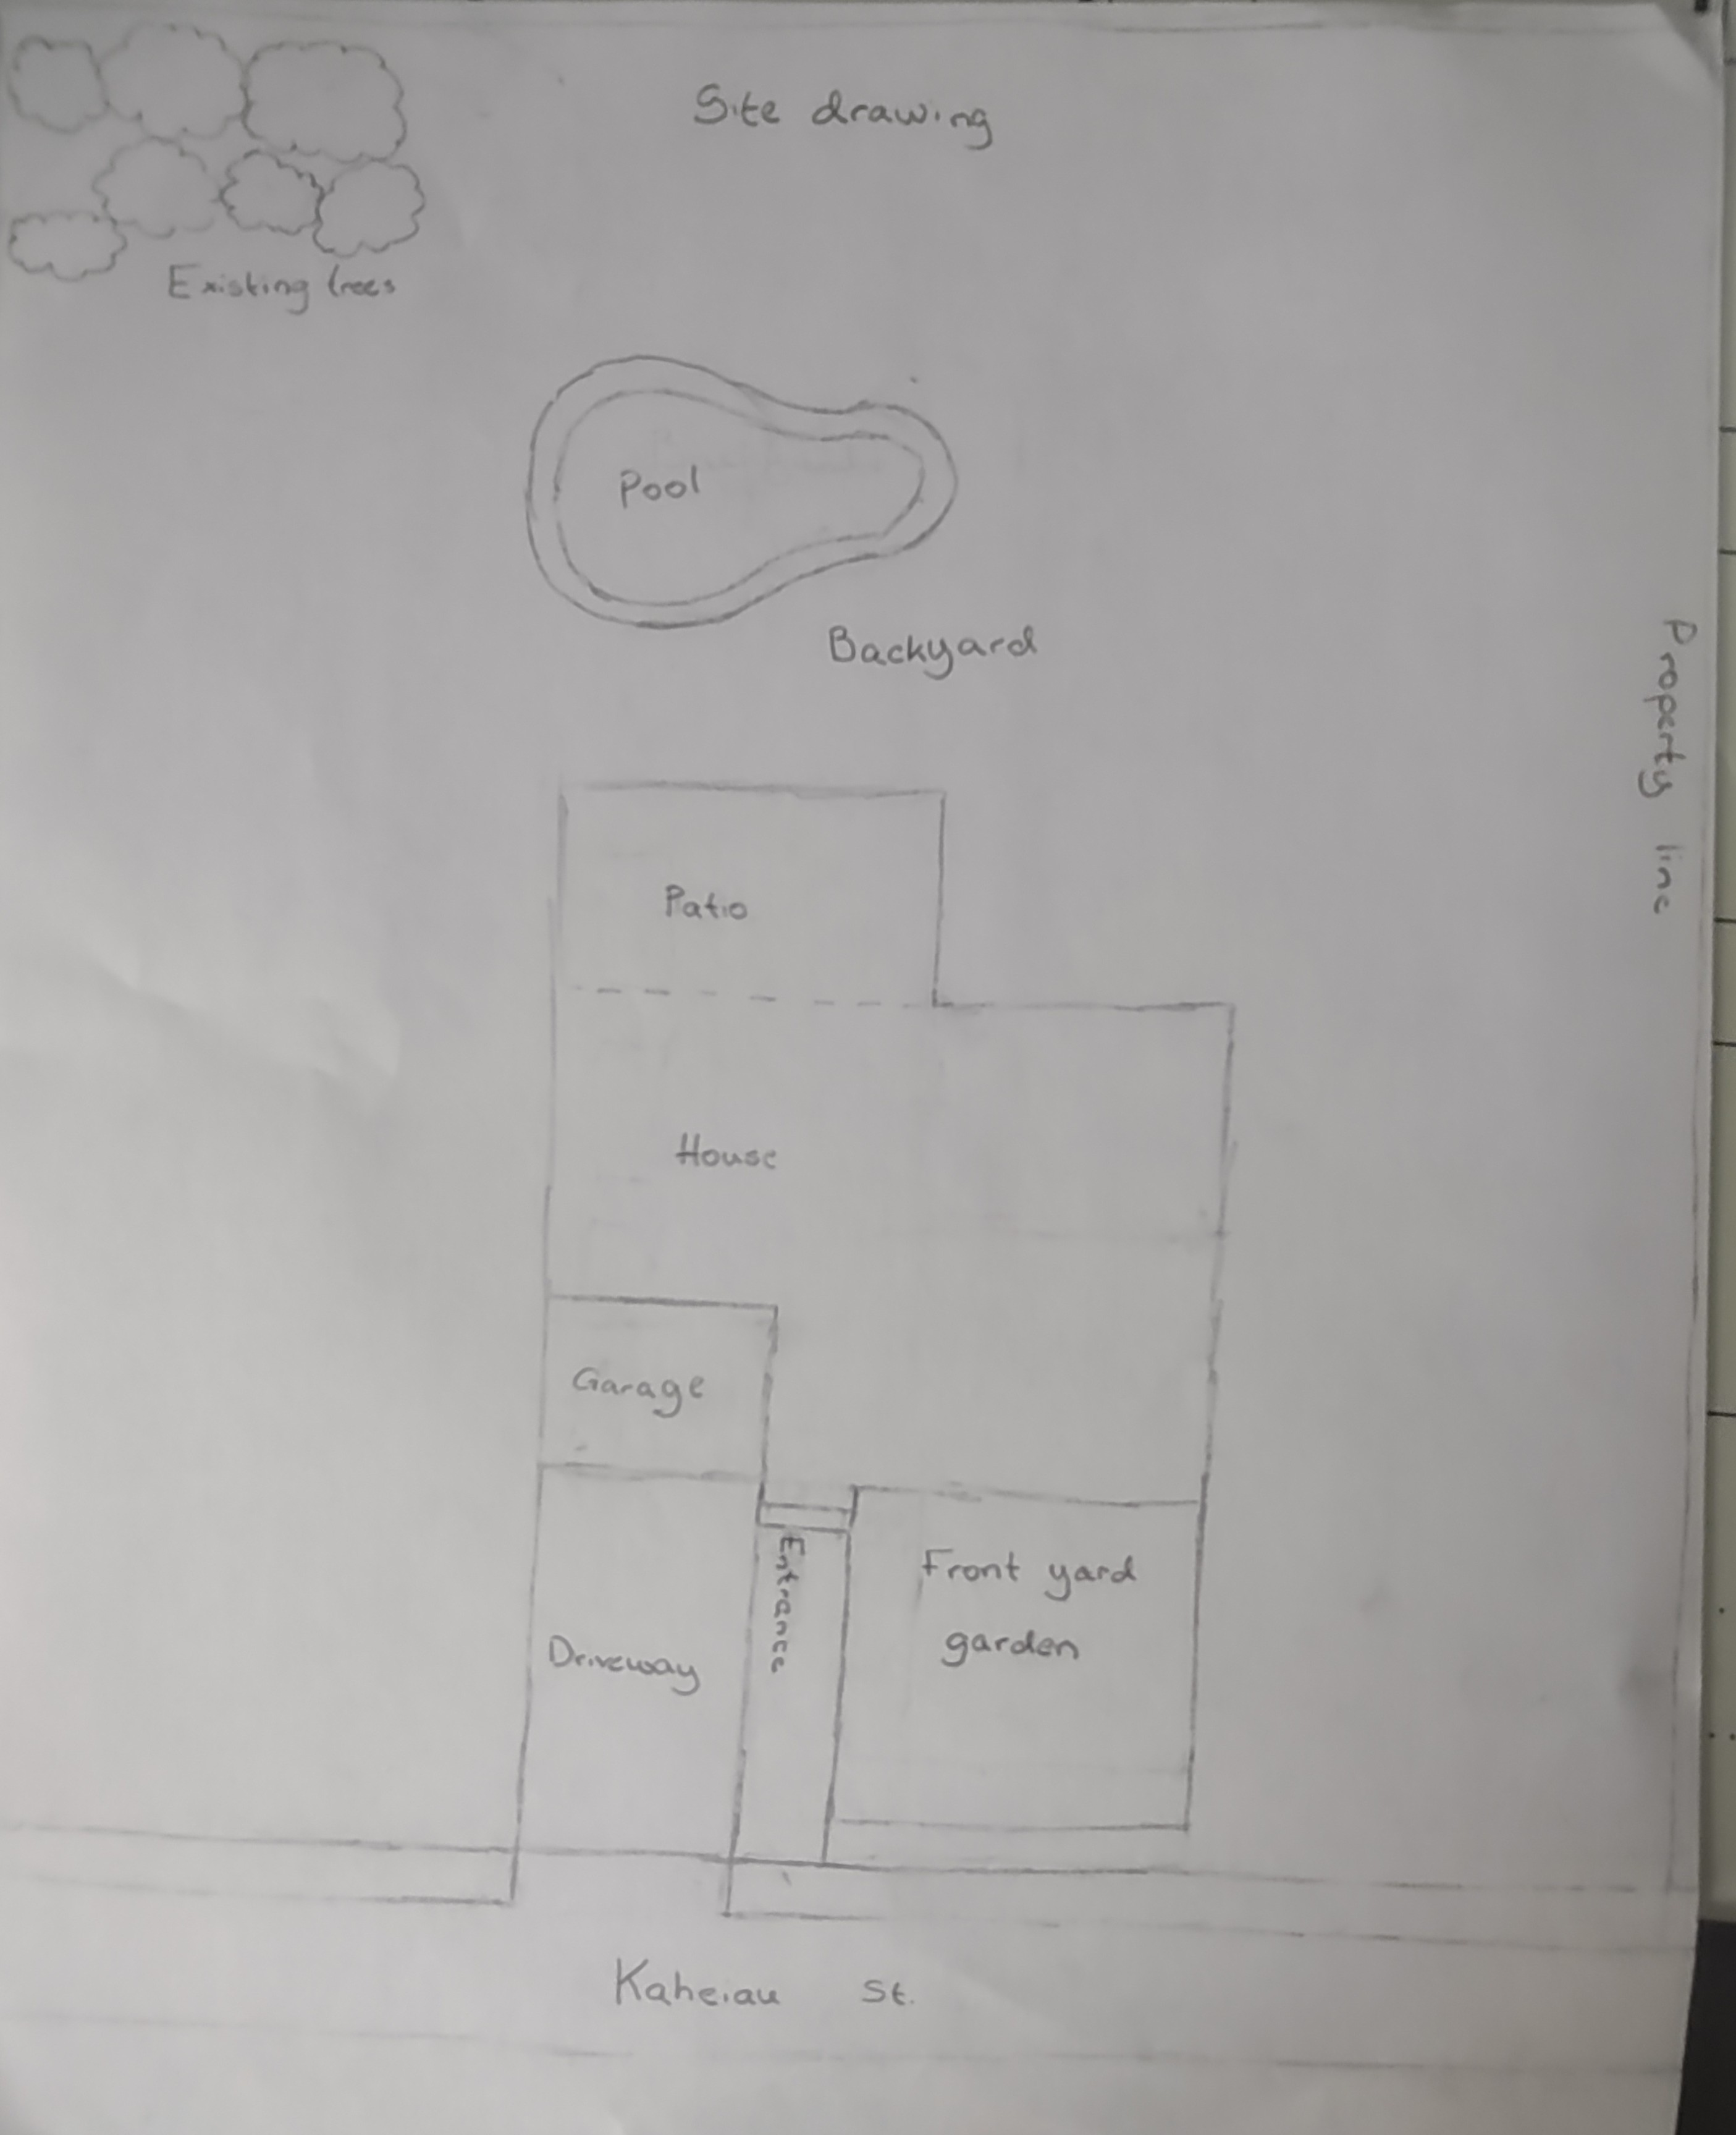 Site drawing
Existing trees
Pool
Backyard
Property line
Patio
House
Garage
Entrance
Front yard
garden
Driveway
Kaheiau St.